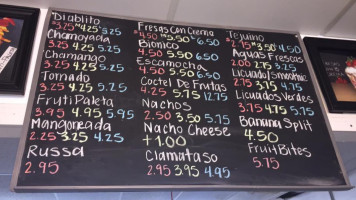 Diablito
3.25 4.25 5.25
Chamoyada
3.25 4.25 5.25
Chamango
3.25 4.25 5.25
Tornado
3.25 4.25 5.25
FrutiPaleta
3.95 4.95 5.95
Mangoneada
2.25 3.25 4.25
Russa
2.95
Fresas Con Crema
4.50 5.50 6.50
Bionico
4.50 5.50 6.50
Escamocha
4.50 5.50 6.50
Coctel De Frutas
4.25 5.75 12.75
Nachos
2.50 3.50 5.75
Nacho Cheese
+1.00
Clamataso
2.95 3.95 4.95
Tejuino
2.75 3.50 4.50
Aguas Frescas
2.00 2.75 5.25
Licuado/Smoothie
2.75 3.75 4.75
Licuados Verdes
3.75 4.75 5.75
Banana Split
4.50
FruitBites
5.75